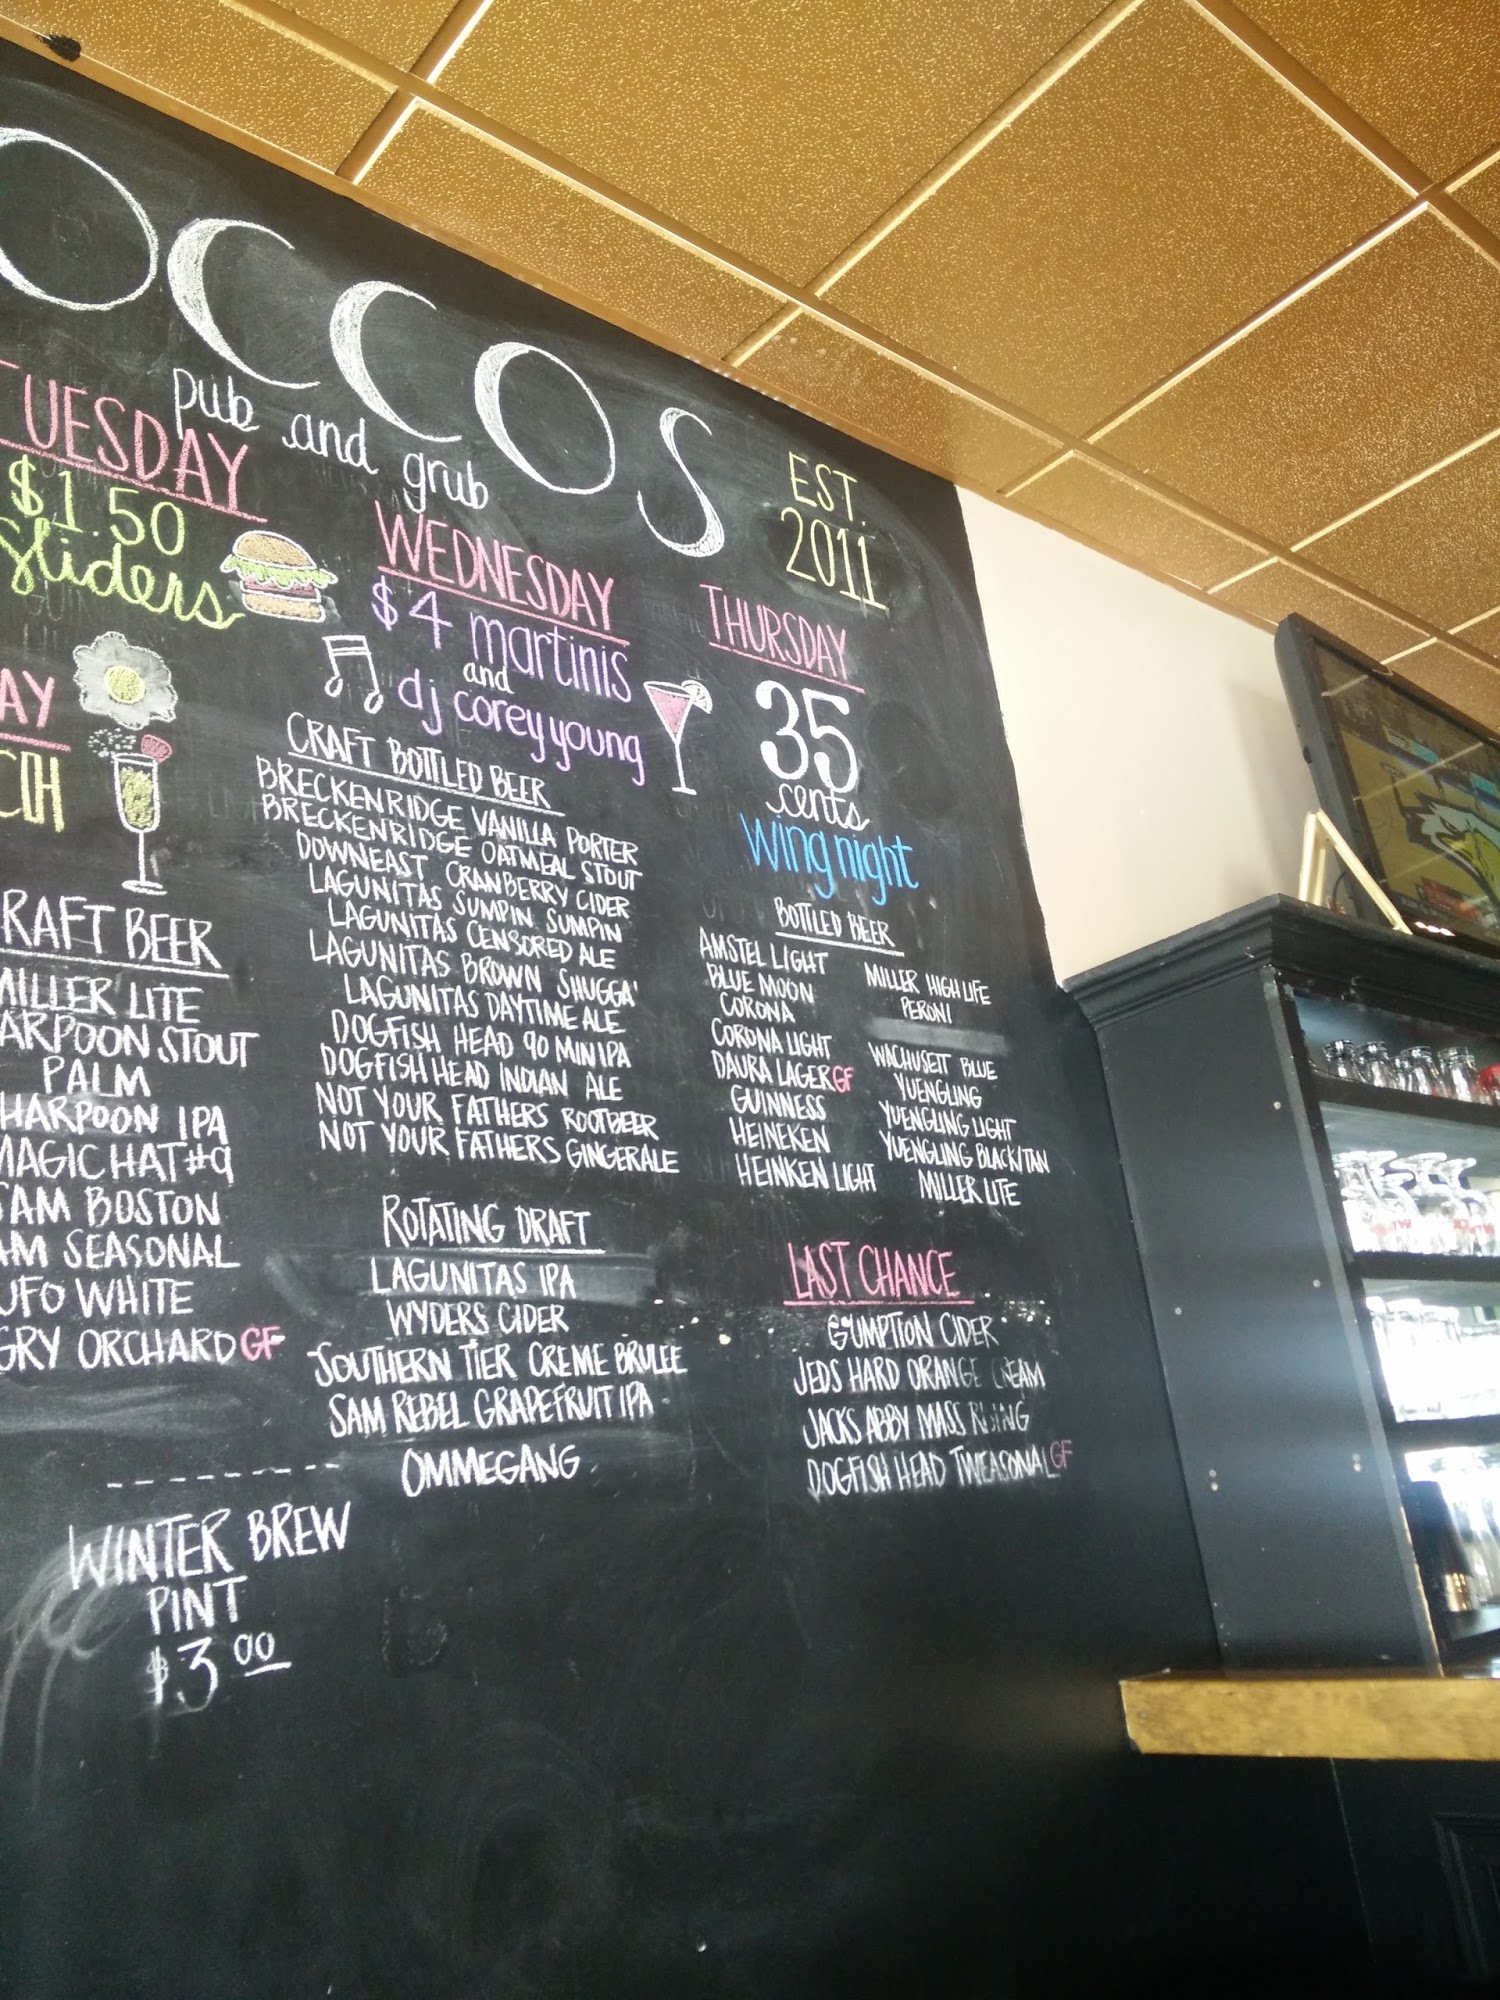 OCCOS
pub and grub
EST.
2011
TUESDAY
$1.50
Sliders
WEDNESDAY
$4 martinis
and
dj corey young
THURSDAY
35
cents
wing night
AY
CH
RAFT BEER
MILLER LITE
ARPOON STOUT
PALM
HARPOON IPA
MAGIC HAT #9
SAM BOSTON
AM SEASONAL
UFO WHITE
GRY ORCHARD GF
WINTER BREW
PINT
$3.00
CRAFT BOTTLED BEER
BRECKENRIDGE VANILLA PORTER
BRECKENRIDGE OATMEAL STOUT
DOWNEAST CRANBERRY CIDER
LAGUNITAS SUMPIN SUMPIN
LAGUNITAS CENSORED ALE
LAGUNITAS BROWN SHUGGA'
LAGUNITAS DAYTIME ALE
DOGFISH HEAD 90 MIN IPA
DOGFISH HEAD INDIAN ALE
NOT YOUR FATHERS ROOTBEER
NOT YOUR FATHERS GINGERALE
ROTATING DRAFT
LAGUNITAS IPA
WYDERS CIDER
SOUTHERN TIER CREME BRULEE
SAM REBEL GRAPEFRUIT IPA
OMMEGANG
BOTTLED BEER
AMSTEL LIGHT
BLUE MOON
CORONA
CORONA LIGHT
DAURA LAGER GF
GUINNESS
HEINEKEN
HEINKEN LIGHT
MILLER HIGH LIFE
PERONI
WACHUSETT BLUE
YUENGLING
YUENGLING LIGHT
YUENGLING BLACK/TAN
MILLER LITE
LAST CHANCE
GUMPTION CIDER
JEDS HARD ORANGE CREAM
JACKS ABBY MASS RISING
DOGFISH HEAD TWEASONAL GF